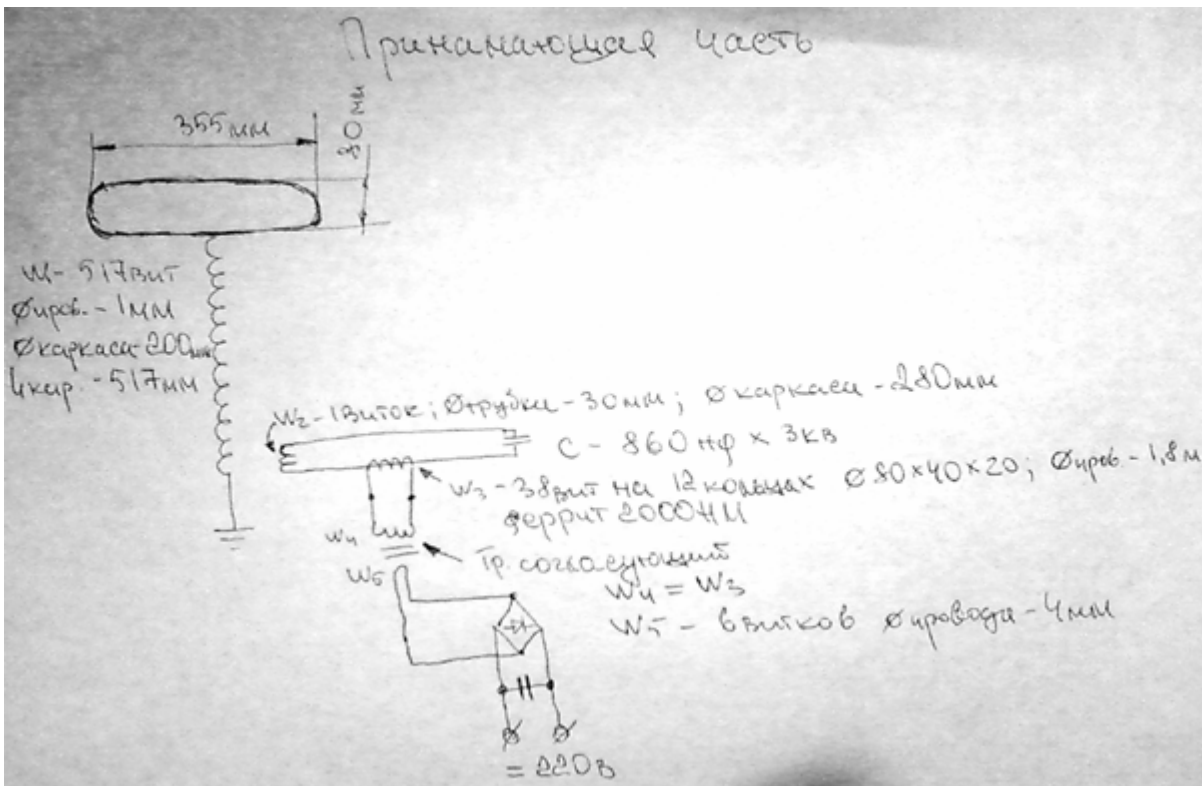 Принамающая часть
355 мм
80 мм
W1- 517 вит
Øпров. - 1 мм
Øкаркаса-200мм
hкар. - 517 мм
W2 - 1 виток; Øтрубки - 30 мм; Øкаркаса - 280 мм
C - 860 нф x 3кв
W3 - 38 вит на 12 кольцах Ø 80x40x20; Øпров. - 1,8 м
феррит 2000НМ
W4
Тр. согласующий
W5
W4 = W3
W5 - 6 витков Øпровода - 4мм
= 220 в